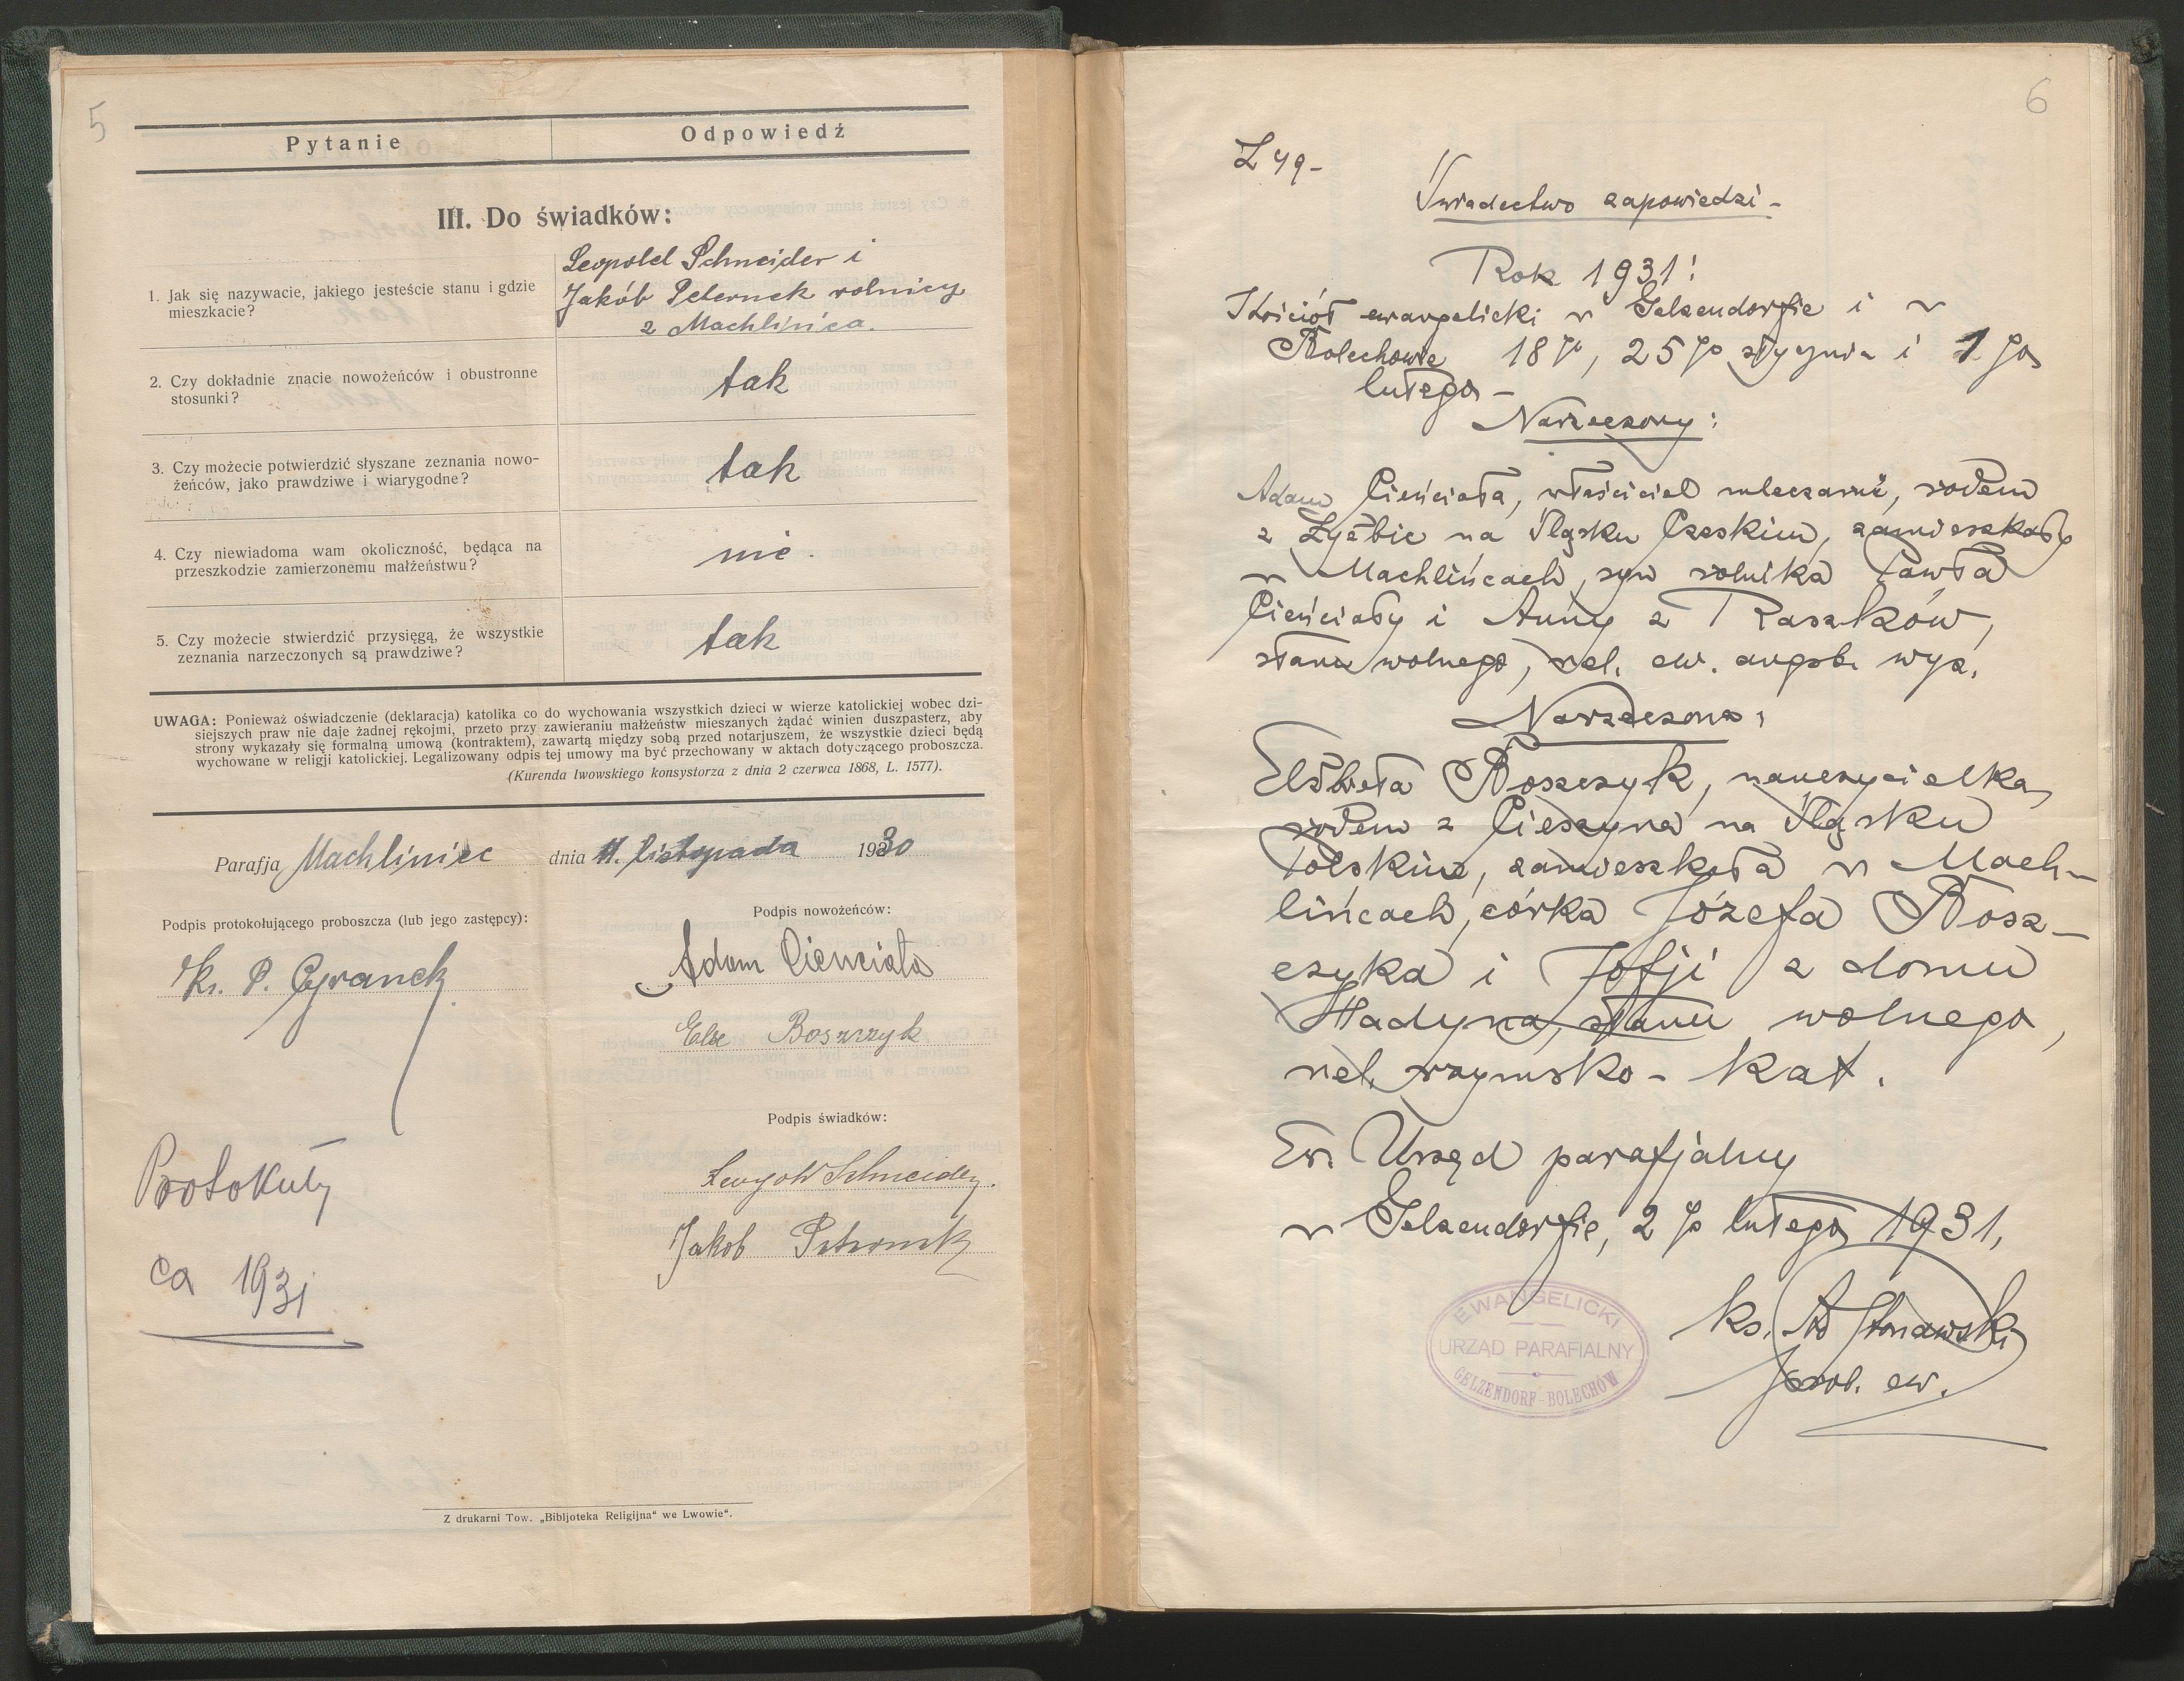 5
Pytanie
Odpowiedź
III. Do świadków:
1. Jak się nazywacie, jakiego jesteście stanu i gdzie
mieszkacie?
Leopold Schneider i
Jakób Peternek rolnicy
z Machlińca.
2. Czy dokładnie znacie nowożeńców i obustronne
stosunki?
tak
3. Czy możecie potwierdzić słyszane zeznania nowo-
żeńców, jako prawdziwe i wiarygodne?
tak
4. Czy niewiadoma wam okoliczność, będąca na
przeszkodzie zamierzonemu małżeństwu?
nie.
5. Czy możecie stwierdzić przysięgą, że wszystkie
zeznania narzeczonych są prawdziwe?
tak
UWAGA: Ponieważ oświadczenie (deklaracja) katolika co do wychowania wszystkich dzieci w wierze katolickiej wobec dzi-
siejszych praw nie daje żadnej rękojmi, przeto przy zawieraniu małżeństw mieszanych żądać winien duszpasterz, aby
strony wykazały się formalną umową (kontraktem), zawartą między sobą przed notarjuszem, że wszystkie dzieci będą
wychowane w religji katolickiej. Legalizowany odpis tej umowy ma być przechowany w aktach dotyczącego proboszcza.
(Kurenda lwowskiego konsystorza z dnia 2 czerwca 1868, L. 1577).
Parafja Machliniec dnia 11. listopada 1930
Podpis protokołującego proboszcza (lub jego zastępcy):
Ks. P.
Podpis nowożeńców:
Adam Cienciała
Else Boszczyk
Podpis świadków:
Leopold Schneider.
Jakob Peternek
Protokuły
ca 1931
Z drukarni Tow. „Bibljoteka Religijna“ we Lwowie“.
6
L 49-
Świadectwo zapowiedzi-
Rok 1931:
Kościół ewangelicki w Gelsendorfie i w
Bolechowie 18go, 25go stycznia i 1go
lutego-
Narzeczony:
Adam Cieńciała, właściciel mleczarni, rodem
z na Śląsku Czeskim, zamieszkały
w Machlińcach, syn rolnika Pawła
Cieńciały i Anny z Raszków,
stanu wolnego, rel. ew. augsb. wyz.
Narzeczona:
Elżbieta Boszczyk, nauczycielka,
rodem z Cieszyna na Śląsku
Polskim, zamieszkała w Mach-
lińcach, córka Józefa Bosz-
czyka i Zofji z domu
Hadyna, stanu wolnego,
rel. rzymsko-kat.
Ew. Urząd parafjalny
w Gelsendorfie, 2go lutego 1931,
EWANGELICKI
URZĄD PARAFIALNY
GELZENDORF-BOLECHÓW
ks.
prob. ew.